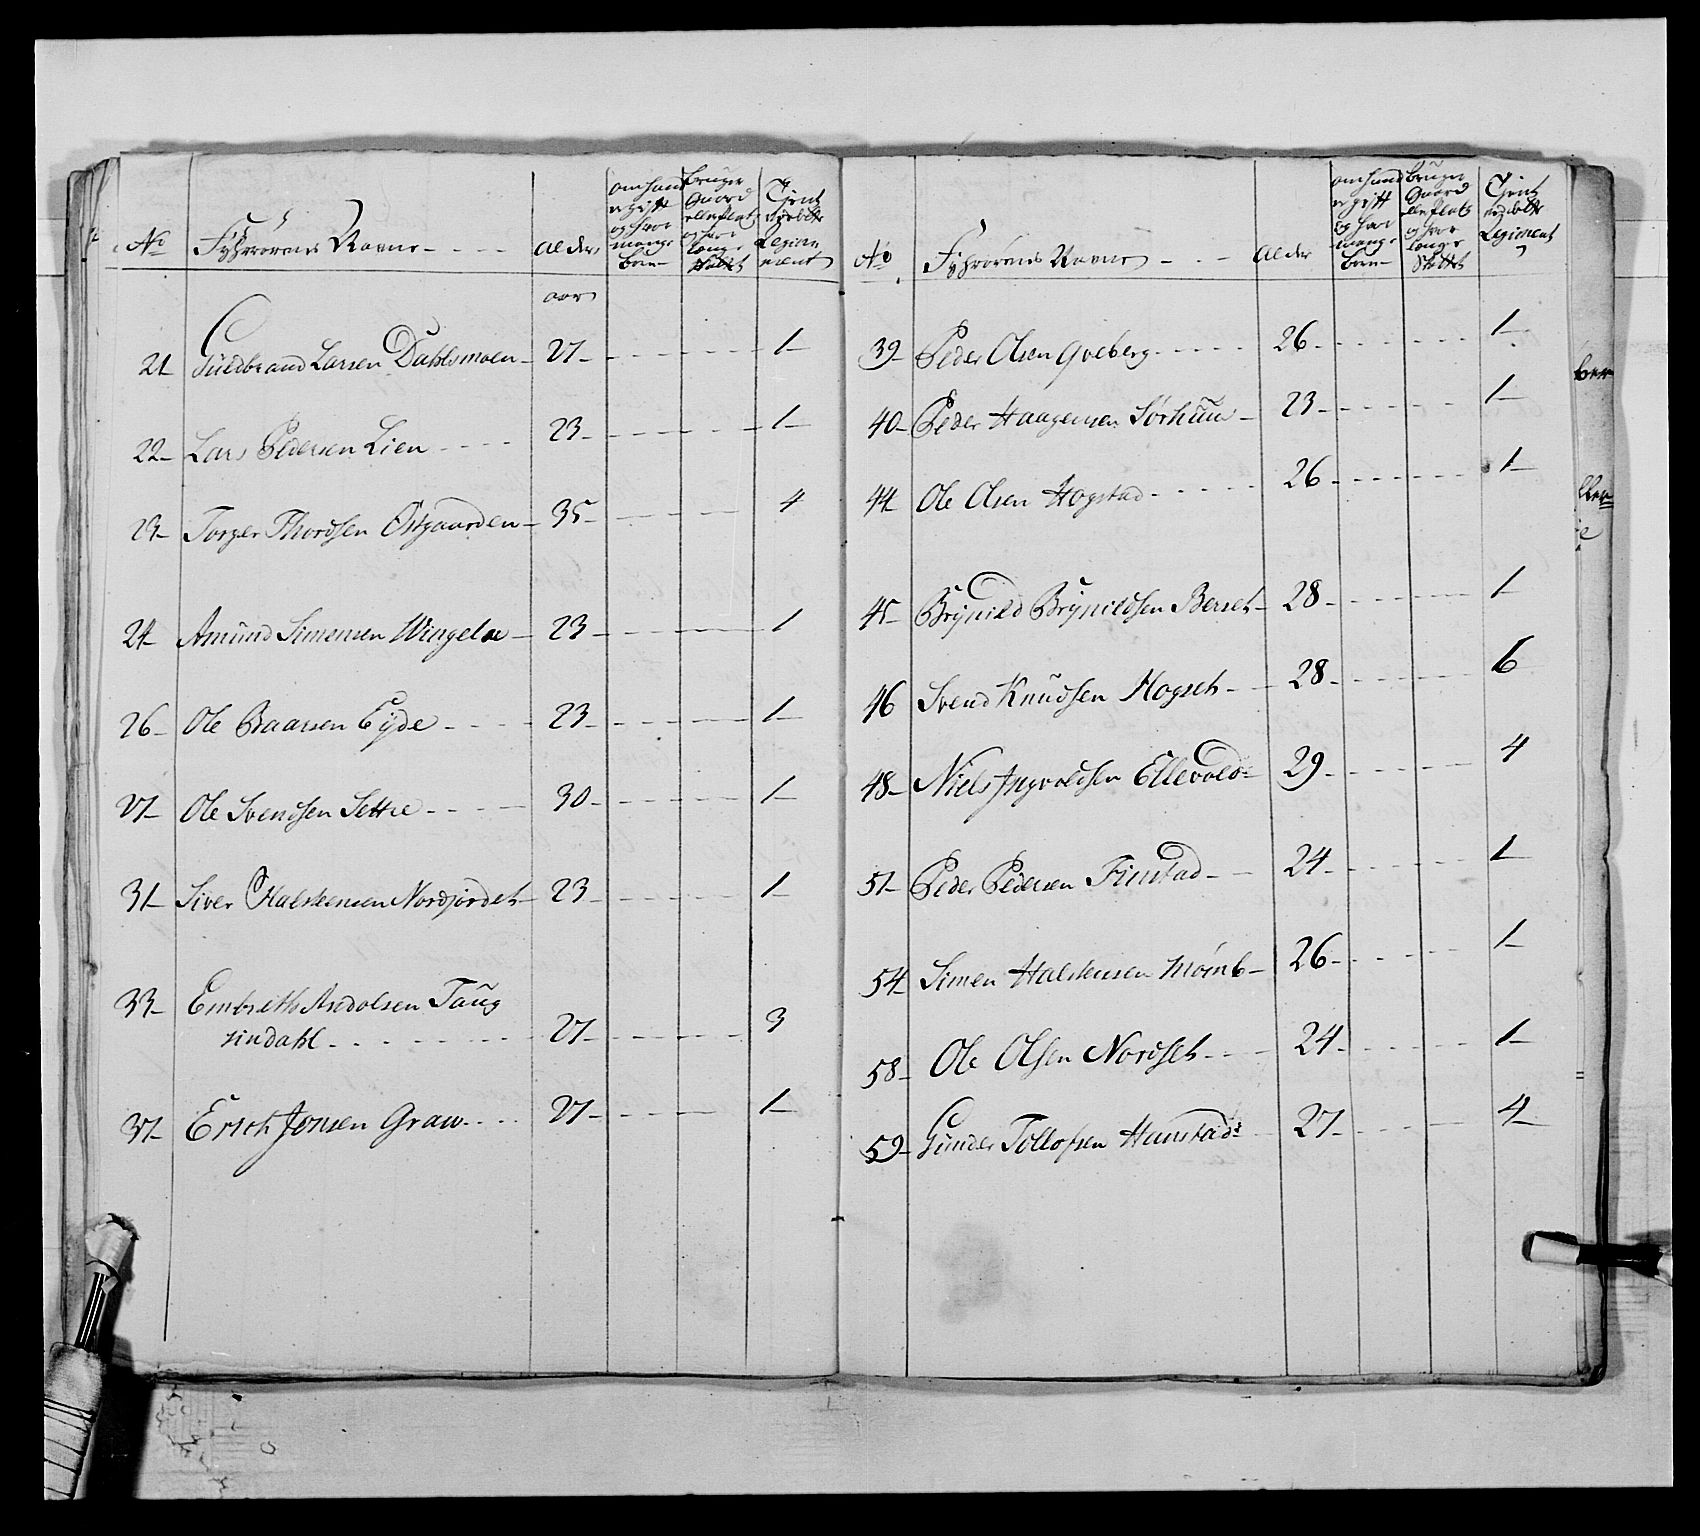 No Navne Alder om hand er gift og hvor mange børn bruger Gaard eller Plads og hvor længe Tient ved dette Regiment
aar
21 Guldbrand Larsen Dahlsmoen 27 1
22 Lars Pedersen Lien 23 1
23 Torger Thordsen Østgaarden 35 4
24 Amund Simensen Wingelae 23 1
26 Ole Baarsen Eyde 23 1
27 Ole Svendsen Settre 30 1
31 Siver Halstensen Nordjordet 23 1
33 Embreth Asdolsen Taug
sindahl 27 3
37 Erich Jonsen Graw 27 1
No Navne Alder om hand er gift og hvor mange børn bruger Gaard eller Plads og hvor længe Tient ved dette Regiment
39 Peder Olsen Qveberg 26 1
40 Peder Haagensen Sørhuus 23 1
44 Ole Olsen Hogstad 26 1
45 Brynild Brynildsen Berset 28 1
46 Svend Knudsen Hogset 28 6
48 Niels Ingvoldsen Ellevold 29 4
51 Peder Pedersen Finstad 24 1
54 Simen Halstensen Momb 26 1
58 Ole Olsen Nordset 24 1
59 Gunder Tollofsen Hunstad 27 4